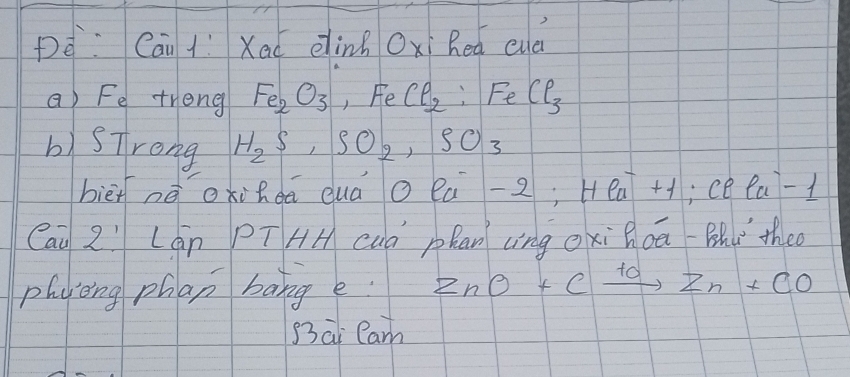 Đề: Câu 1: Xác định Oxi hoá của
a) Fe trong Fe₂O₃, FeCl₂; FeCl₃
b) S Trong H₂S, SO₂, SO₃
biết số oxi hoá của O là -2; H là +1; Cl là -1
Câu 2: Lập PTHH của phản ứng oxi hoá - khử theo
phương pháp bằng e: ZnO + C →t⁰ Zn + CO
Bài làm